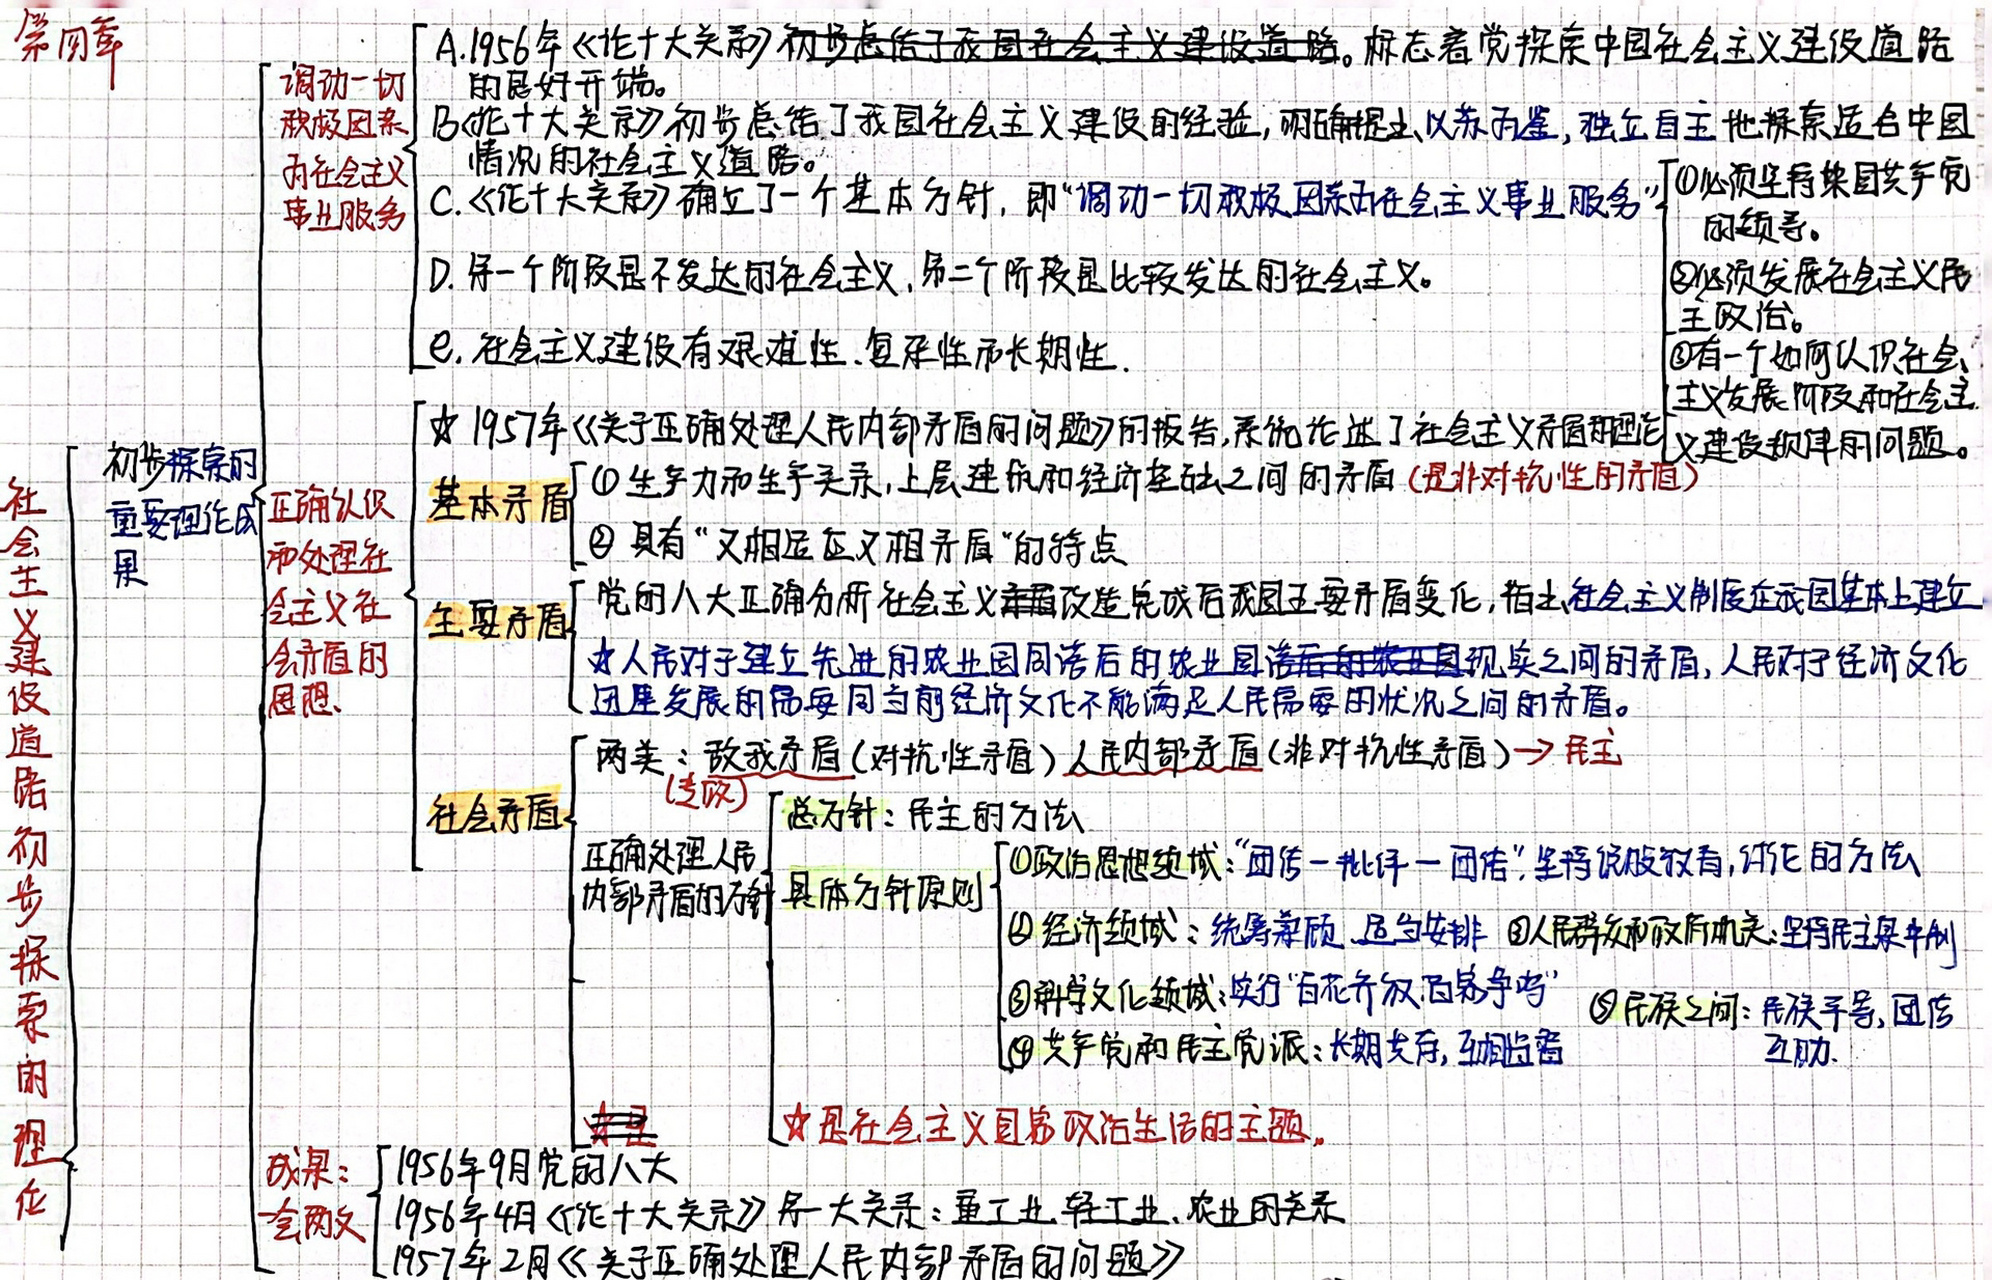 第四章
社会主义建设道路初步探索的理论
初步探索的
重要理论成
果
调动一切
积极因素
为社会主义
事业服务
A.1956年《论十大关系》初步总结了我国社会主义建设道路。标志着党探索中国社会主义建设道路
的良好开端。
B《论十大关系》初步总结了我国社会主义建设的经验,明确提出、以苏为鉴,独立自主地探索适合中国
情况的社会主义道路。
C.《论十大关系》确立了一个基本方针,即“调动一切积极因素为社会主义事业服务”
①必须坚持集国共产党
的领导。
②必须发展社会主义民
主政治。
③有一个如何认识社会
主义发展阶段和社会主
义建设规律的问题。
D.第一个阶段是不发达的社会主义,第二个阶段是比较发达的社会主义。
e.社会主义建设有艰难性、复杂性和长期性.
正确认识
和处理社
会主义社
会矛盾的
思想.
☆1957年《关于正确处理人民内部矛盾的问题》的报告,系统论述了社会主义矛盾和理论
基本矛盾
①生产力和生产关系,上层建筑和经济基础之间的矛盾(是非对抗性的矛盾)
②具有“又相适应又相矛盾”的特点
主要矛盾
党的八大正确分析社会主义矛盾改造完成后我国主要矛盾变化,指出社会主义制度在我国基本上建立
☆人民对于建立先进的农业国同落后的农业国落后的农业国现实之间的矛盾,人民对于经济文化
迅速发展的需要同当前经济文化不能满足人民需要的状况之间的矛盾。
社会矛盾
两类:敌我矛盾(对抗性矛盾)人民内部矛盾(非对抗性矛盾)→民主
(专政)
正确处理人民
内部矛盾的方针
总方针:民主的方法
具体方针原则
①政治思想领域:“团结一批评一团结”,坚持说服教育,讨论的方法
②经济领域:统筹兼顾、适当安排 ③人民群众和政府机关:坚持民主集中制
③科学文化领域:实行“百花齐放,百家争鸣”
⑤民族之间:民族平等,团结
互助.
④共产党和民主党派:长期共存,互相监督
☆是
☆是社会主义国家政治生活的主题。
成果:
一会两文
1956年9月党的八大
1956年4月《论十大关系》第一大关系:重工业、轻工业、农业的关系
1957年2月《关于正确处理人民内部矛盾的问题》